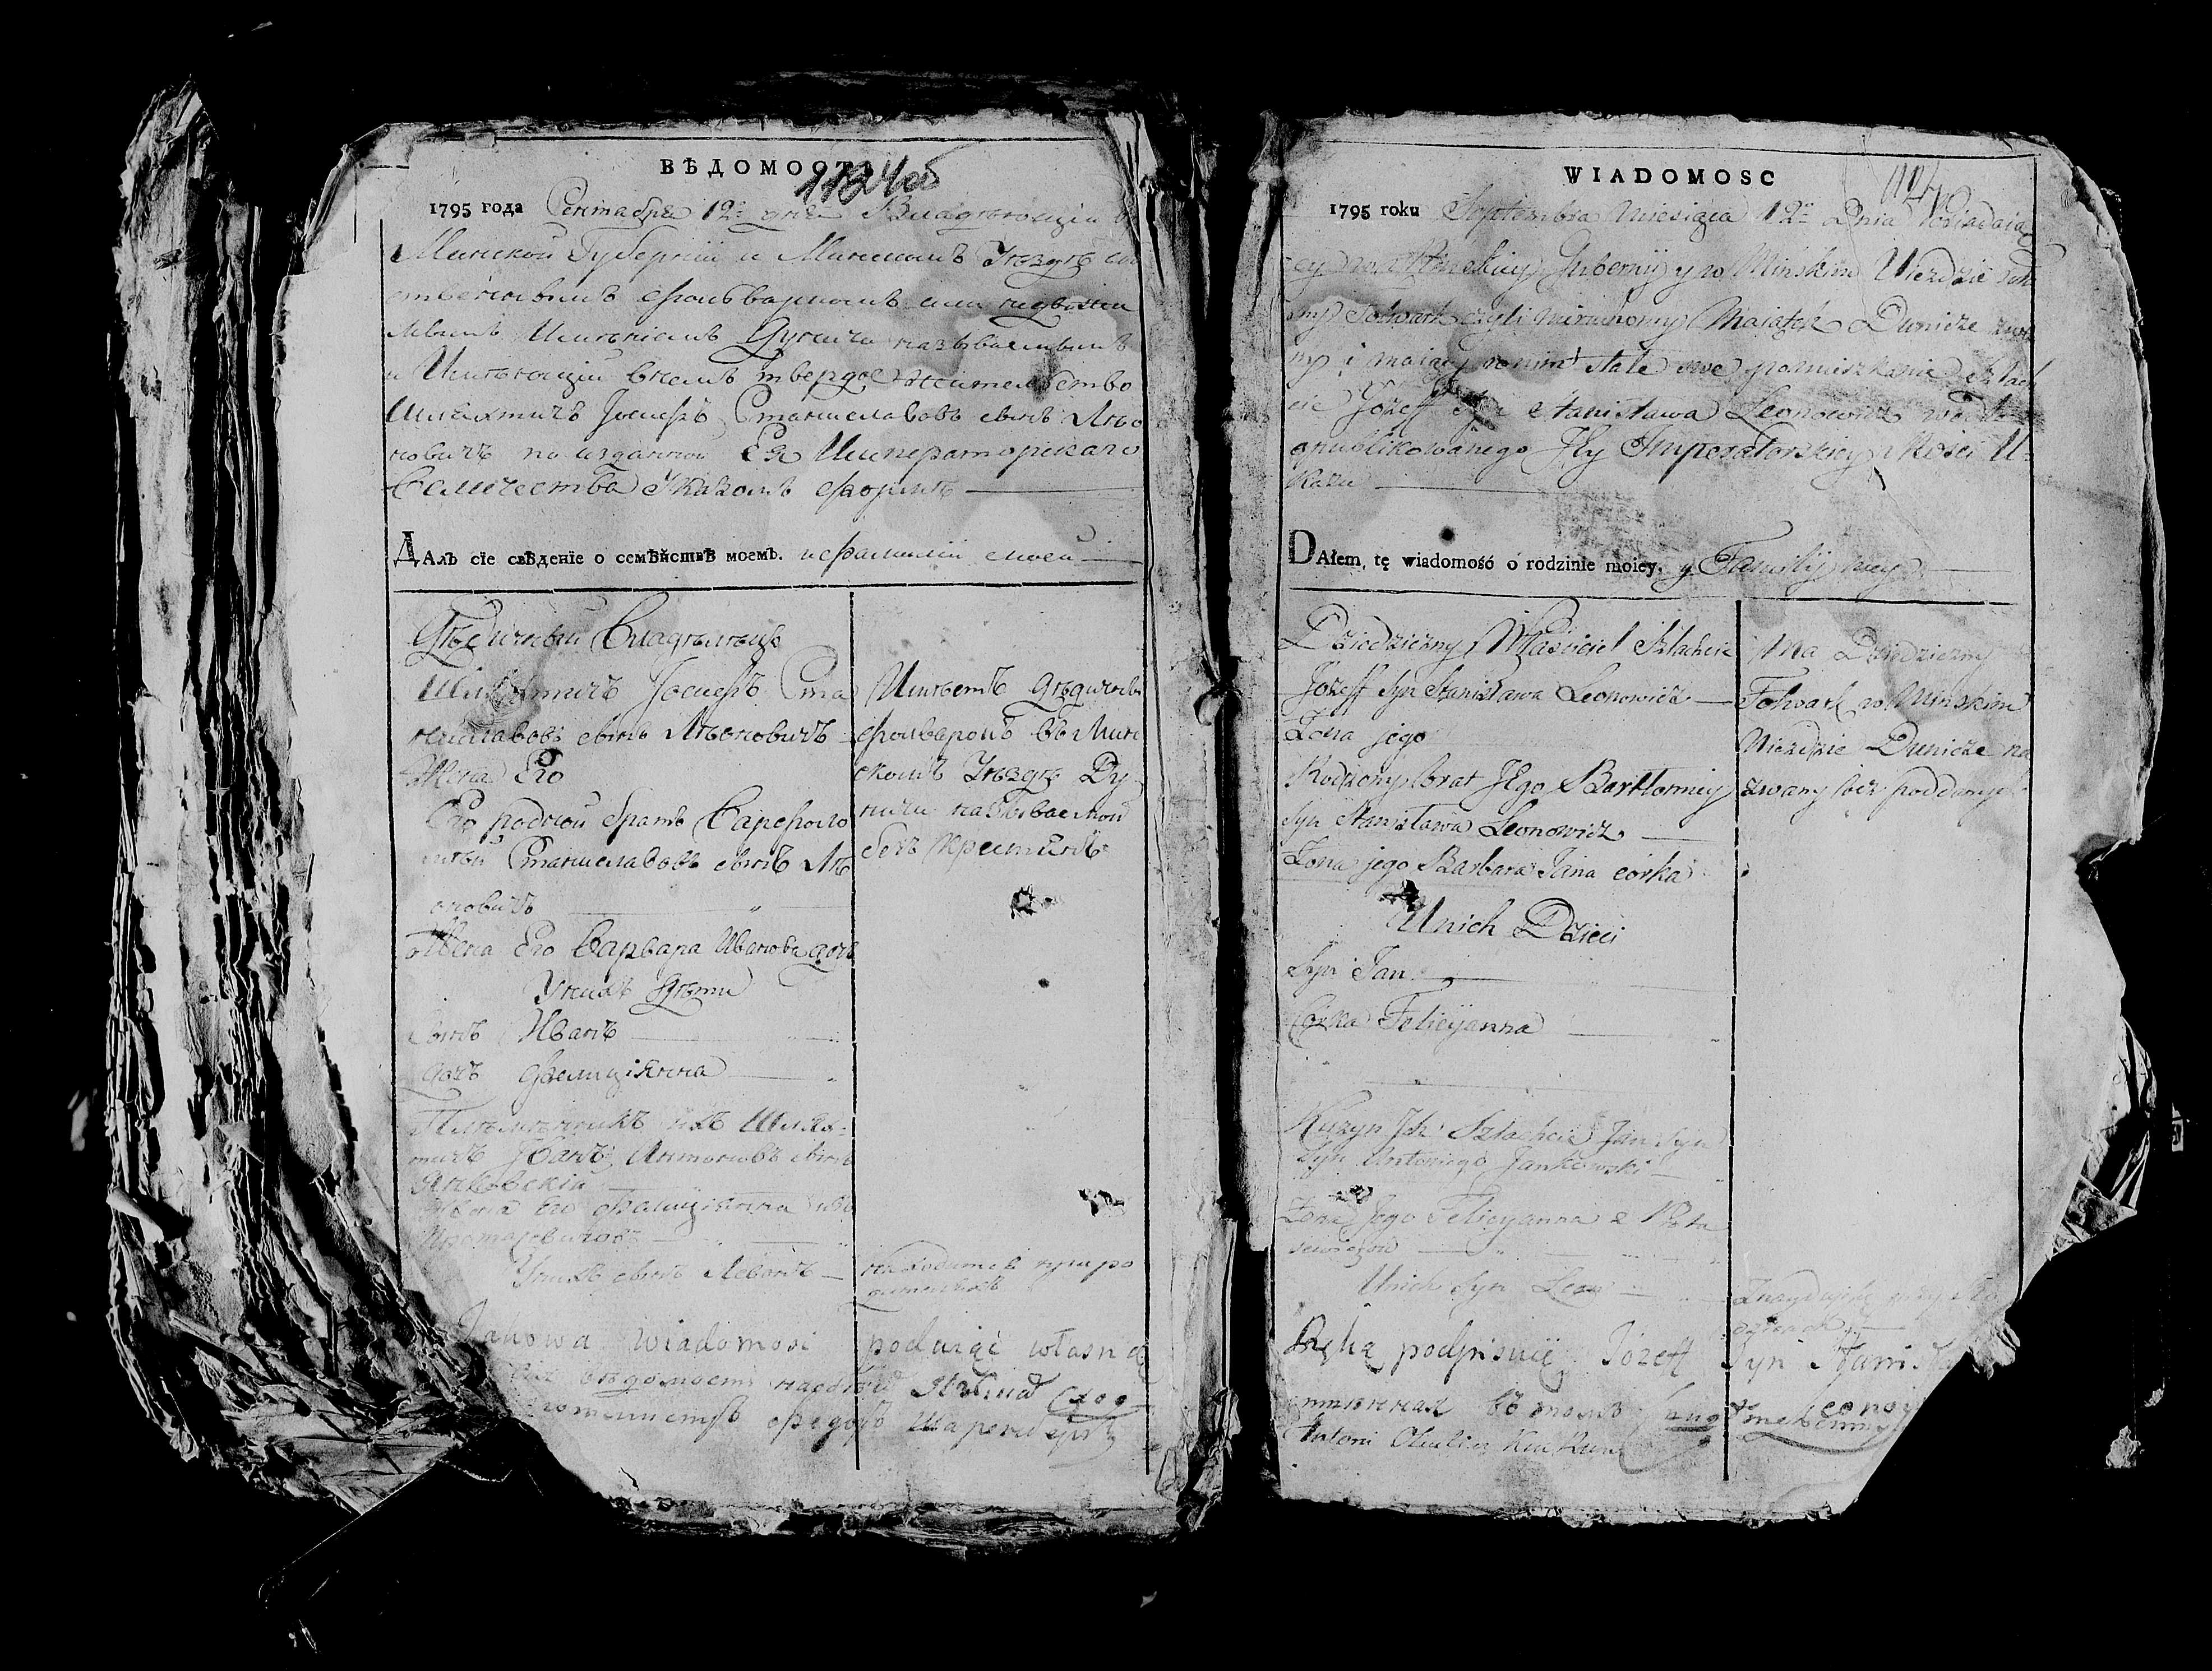 ВѢДОМОСТЬ
1795 года Сентабра 12го дня Владѣющій в
Минской Губерніи и Минскомъ Уѣздѣ со
ственнымъ фольваркомъ или недвижи
мымъ Имѣніемъ Дуничи называемымъ
и Имѣющій внемъ твердое жительство
Шляхтичъ Іосифъ Станиславовъ сынъ Лѣо
новичъ по изданной Ея Императорскаго
Величества Указомъ формѣ
ДАлъ сїе свѣденїе о семѣйствѣ моемъ. и фамиліи моей
Дѣдичный Владѣлецъ
Шляхтичъ Іосифъ Ста
ниславовъ сынъ Лѣоновичъ
Жена Его
Его родной братъ Варфоло
мѣй Станиславовъ сынъ Лѣ
оновичъ
Жена Его Варвара Иванова дочь
Унихъ Дѣти
Сынъ Иванъ
дочь Фелиціянна
Племянникъ ихъ Шлях-
тичъ Іванъ Антоновъ сынъ
Янковскій
Жена Его Фелиціянна изъ
Протасевичовъ
Унихъ сынъ Леонъ
Имѣетъ дѣдичный
фольварокъ въ Мин
скомъ Уѣздѣ Ду
ничи называемой
безъ крестьянъ
находится при ро
дителяхъ
Takowa Wiadomosc podaiąc własną
WIADOMOSC
114
1795 roku Septembra Miesiąca 12o Dnia Posiadaią
cy w Minskiey Gubernij y w Minskim Uiezdzie wła
ny Folwark czyli nieruchomy Maiątek Dunicze zwa
ny i maiący w nim stałe swe pomieszkanie Szlach
cic Jozeff Syn Stanisława Leonowicz wedle
opublikowanego Jey Imperatorskiey Mości U-
kazu
DAłem tę wiadomość ó rodzinie moiey. y Familij mey
Dziedziczny Własciciel Szlachcic
Jozeff Syn Stanisława Leonowicz
Zona jego
Rodzony brat Jego Bartłomiey
Syn Stanisława Leonowicz
Zona jego Barbara Jana corka
Unich Dzieci
Syn Jan
Corka Felicyanna
Kuzyn Ich Szlachcic Jan Syn
Syn Antoniego Jankowski
Zona Jego Felicyanna z Prota
sewiczow
Unich Syn Leon
Ma Dziedziczny
Folwark w Minskim
Uiezdzie Dunicze na
zwany bez poddanych
Znayduie się przy Ro
dzicach
Ręką podpisuię Józeff Syn Stanisła
Antoni